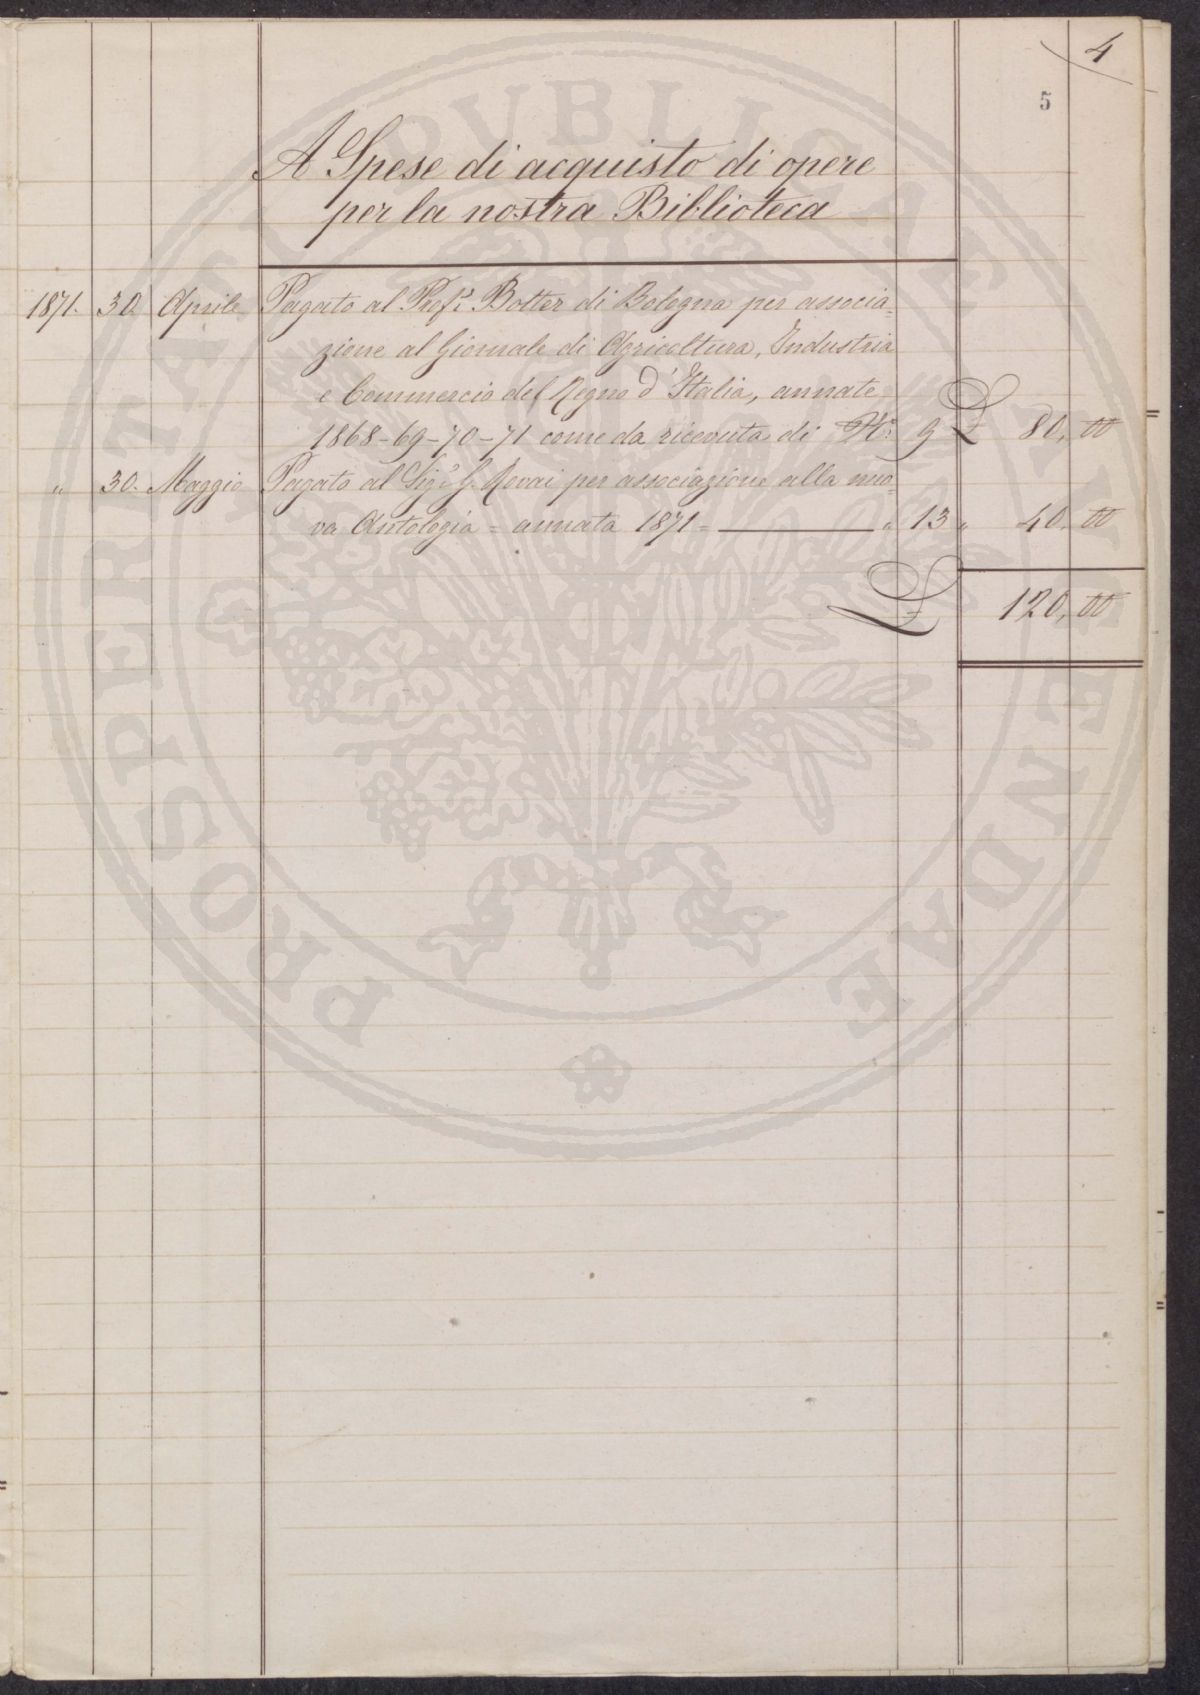 4
5
A Spese di acquisto di opere
per la nostra Biblioteca
1871. 30. Aprile Pagato al Prof.r Botter di Bologna per associa=
zione al Giornale di Agricoltura, Industria
e Commercio del Regno d'Italia, annate
1868-69-70-71 come da ricevuta di N.° 9 £ 80,00
" 30. Maggio Pagato al Sig.r G. Rovai per associazione alla nuo=
va Antologia = annata 1871 = " 13 " 40,00
£ 120,00
PROSPERITATI PVBLICAE AVGENDAE